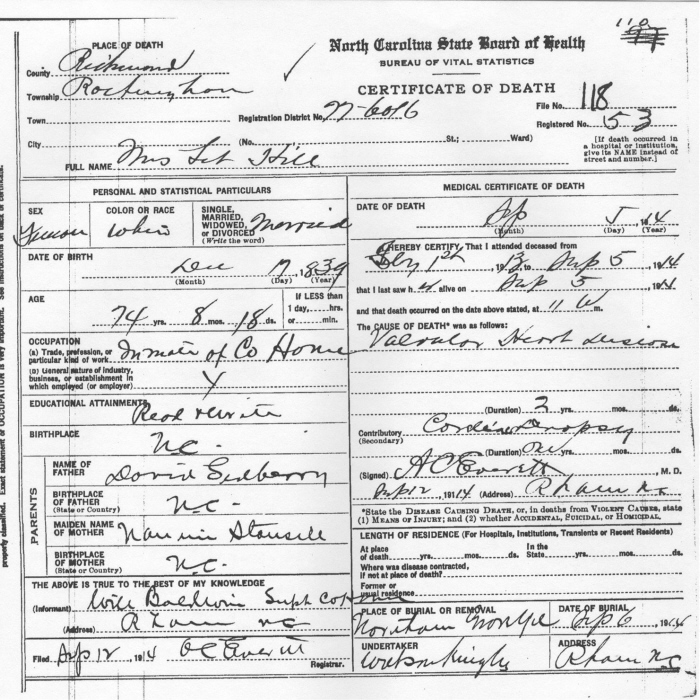 110
77
PLACE OF DEATH
County Richmond
Township Rockingham
Town
City (No. St.; Ward)
FULL NAME Mrs Hill
North Carolina State Board of Health
BUREAU OF VITAL STATISTICS
CERTIFICATE OF DEATH
Registration District No. 77-6016
File No. 118
Registered No. 53
[If death occurred in a hospital or institution, give its NAME instead of street and number.]
PERSONAL AND STATISTICAL PARTICULARS
SEX
COLOR OR RACE
White
SINGLE, MARRIED, WIDOWED, or DIVORCED (Write the word)
Married
DATE OF BIRTH
Dec 7, 1839
(Month) (Day) (Year)
AGE
74 yrs. 8 mos. 18 ds.
If LESS than 1 day,....hrs. or....min.
OCCUPATION
(a) Trade, profession, or particular kind of work Inmate of Co Home
(b) General nature of industry, business, or establishment in which employed (or employer)
EDUCATIONAL ATTAINMENTS
Read & Write
BIRTHPLACE
N.C.
PARENTS
NAME OF FATHER
David Sedberry
BIRTHPLACE OF FATHER (State or Country)
N.C.
MAIDEN NAME OF MOTHER
Nannie
BIRTHPLACE OF MOTHER (State or Country)
N.C.
THE ABOVE IS TRUE TO THE BEST OF MY KNOWLEDGE
(Informant) Will Baldwin Supt Co Home
(Address) R.ham N.C
Filed Sep 12, 1914 A C Everett Registrar.
MEDICAL CERTIFICATE OF DEATH
DATE OF DEATH
Sep 5, 1914
(Month) (Day) (Year)
I HEREBY CERTIFY, That I attended deceased from
1st, 1913, to Sep 5, 1914
that I last saw h alive on Sep 5, 1914
and that death occurred on the date above stated, at 11 m.
The CAUSE OF DEATH* was as follows:
Valvular Heart disease
(Duration) 2 yrs. mos. ds.
Contributory (Secondary) Cardiac Dropsy
(Duration) One yrs. mos. ds.
(Signed) A C Everett, M. D.
Sep 12, 1914 (Address) R.ham N.C
*State the DISEASE CAUSING DEATH, or, in deaths from VIOLENT CAUSES, state (1) MEANS OF INJURY; and (2) whether ACCIDENTAL, SUICIDAL, or HOMICIDAL.
LENGTH OF RESIDENCE (For Hospitals, Institutions, Transients or Recent Residents)
At place of death yrs. mos. ds. In the State yrs. mos. ds.
Where was disease contracted, if not at place of death?
Former or usual residence
PLACE OF BURIAL OR REMOVAL
DATE OF BURIAL
Sep 6, 1914
UNDERTAKER
ADDRESS
R.ham N.C
properly classified. Exact statement of OCCUPATION is very important. See instructions on back of certificate.